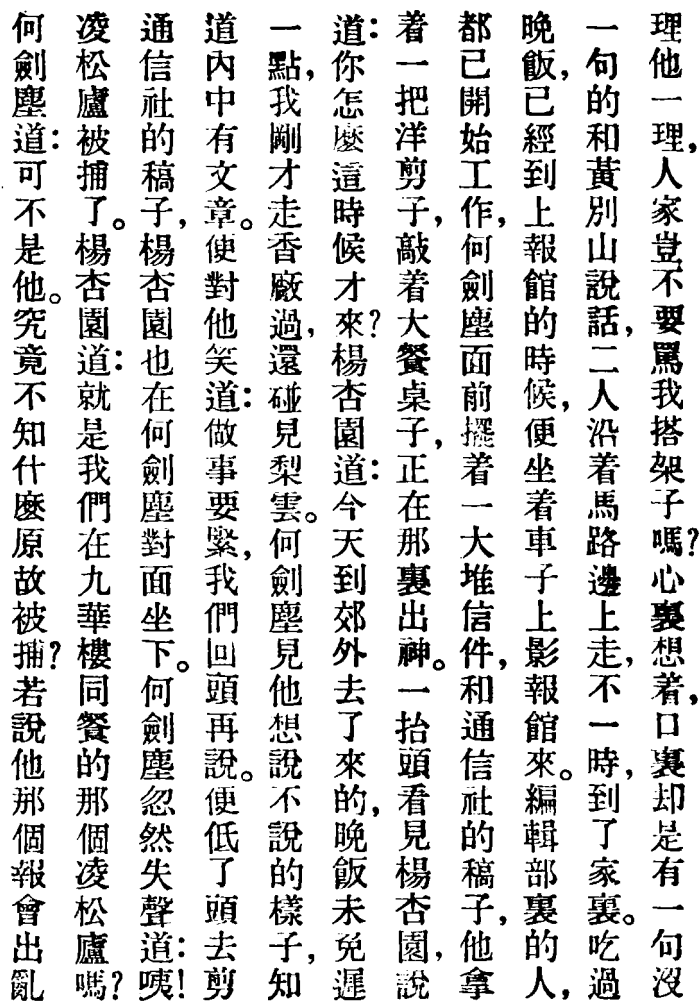 理他一理，人家豈不要罵我搭架子嗎？心裏想着，口裏却是有一句沒
一句的和黃別山說話，二人沿着馬路邊上走，不一時，到了家裏。吃過
晚飯，已經到上報館的時候，便坐着車子上影報館來。編輯部裏的人，
都已開始工作，何劍塵面前擺着一大堆信件，和通信社的稿子，他拿
着一把洋剪子，敲着大餐桌子，正在那裏出神。一抬頭看見楊杏園，說
道：你怎麽這時候才來？楊杏園道：今天到郊外去了來的，晚飯未免遲
一點，我剛才走香廠過，還碰見梨雲。何劍塵見他想說不說的樣子，知
道內中有文章。便對他笑道：做事要緊，我們回頭再說。便低了頭去剪
通信社的稿子，楊杏園也在何劍塵對面坐下。何劍塵忽然失聲道：咦！
凌松廬被捕了。楊杏園道：就是我們在九華樓同餐的那個凌松廬嗎？
何劍塵道：可不是他。究竟不知什麽原故被捕？若說他那個報會出亂